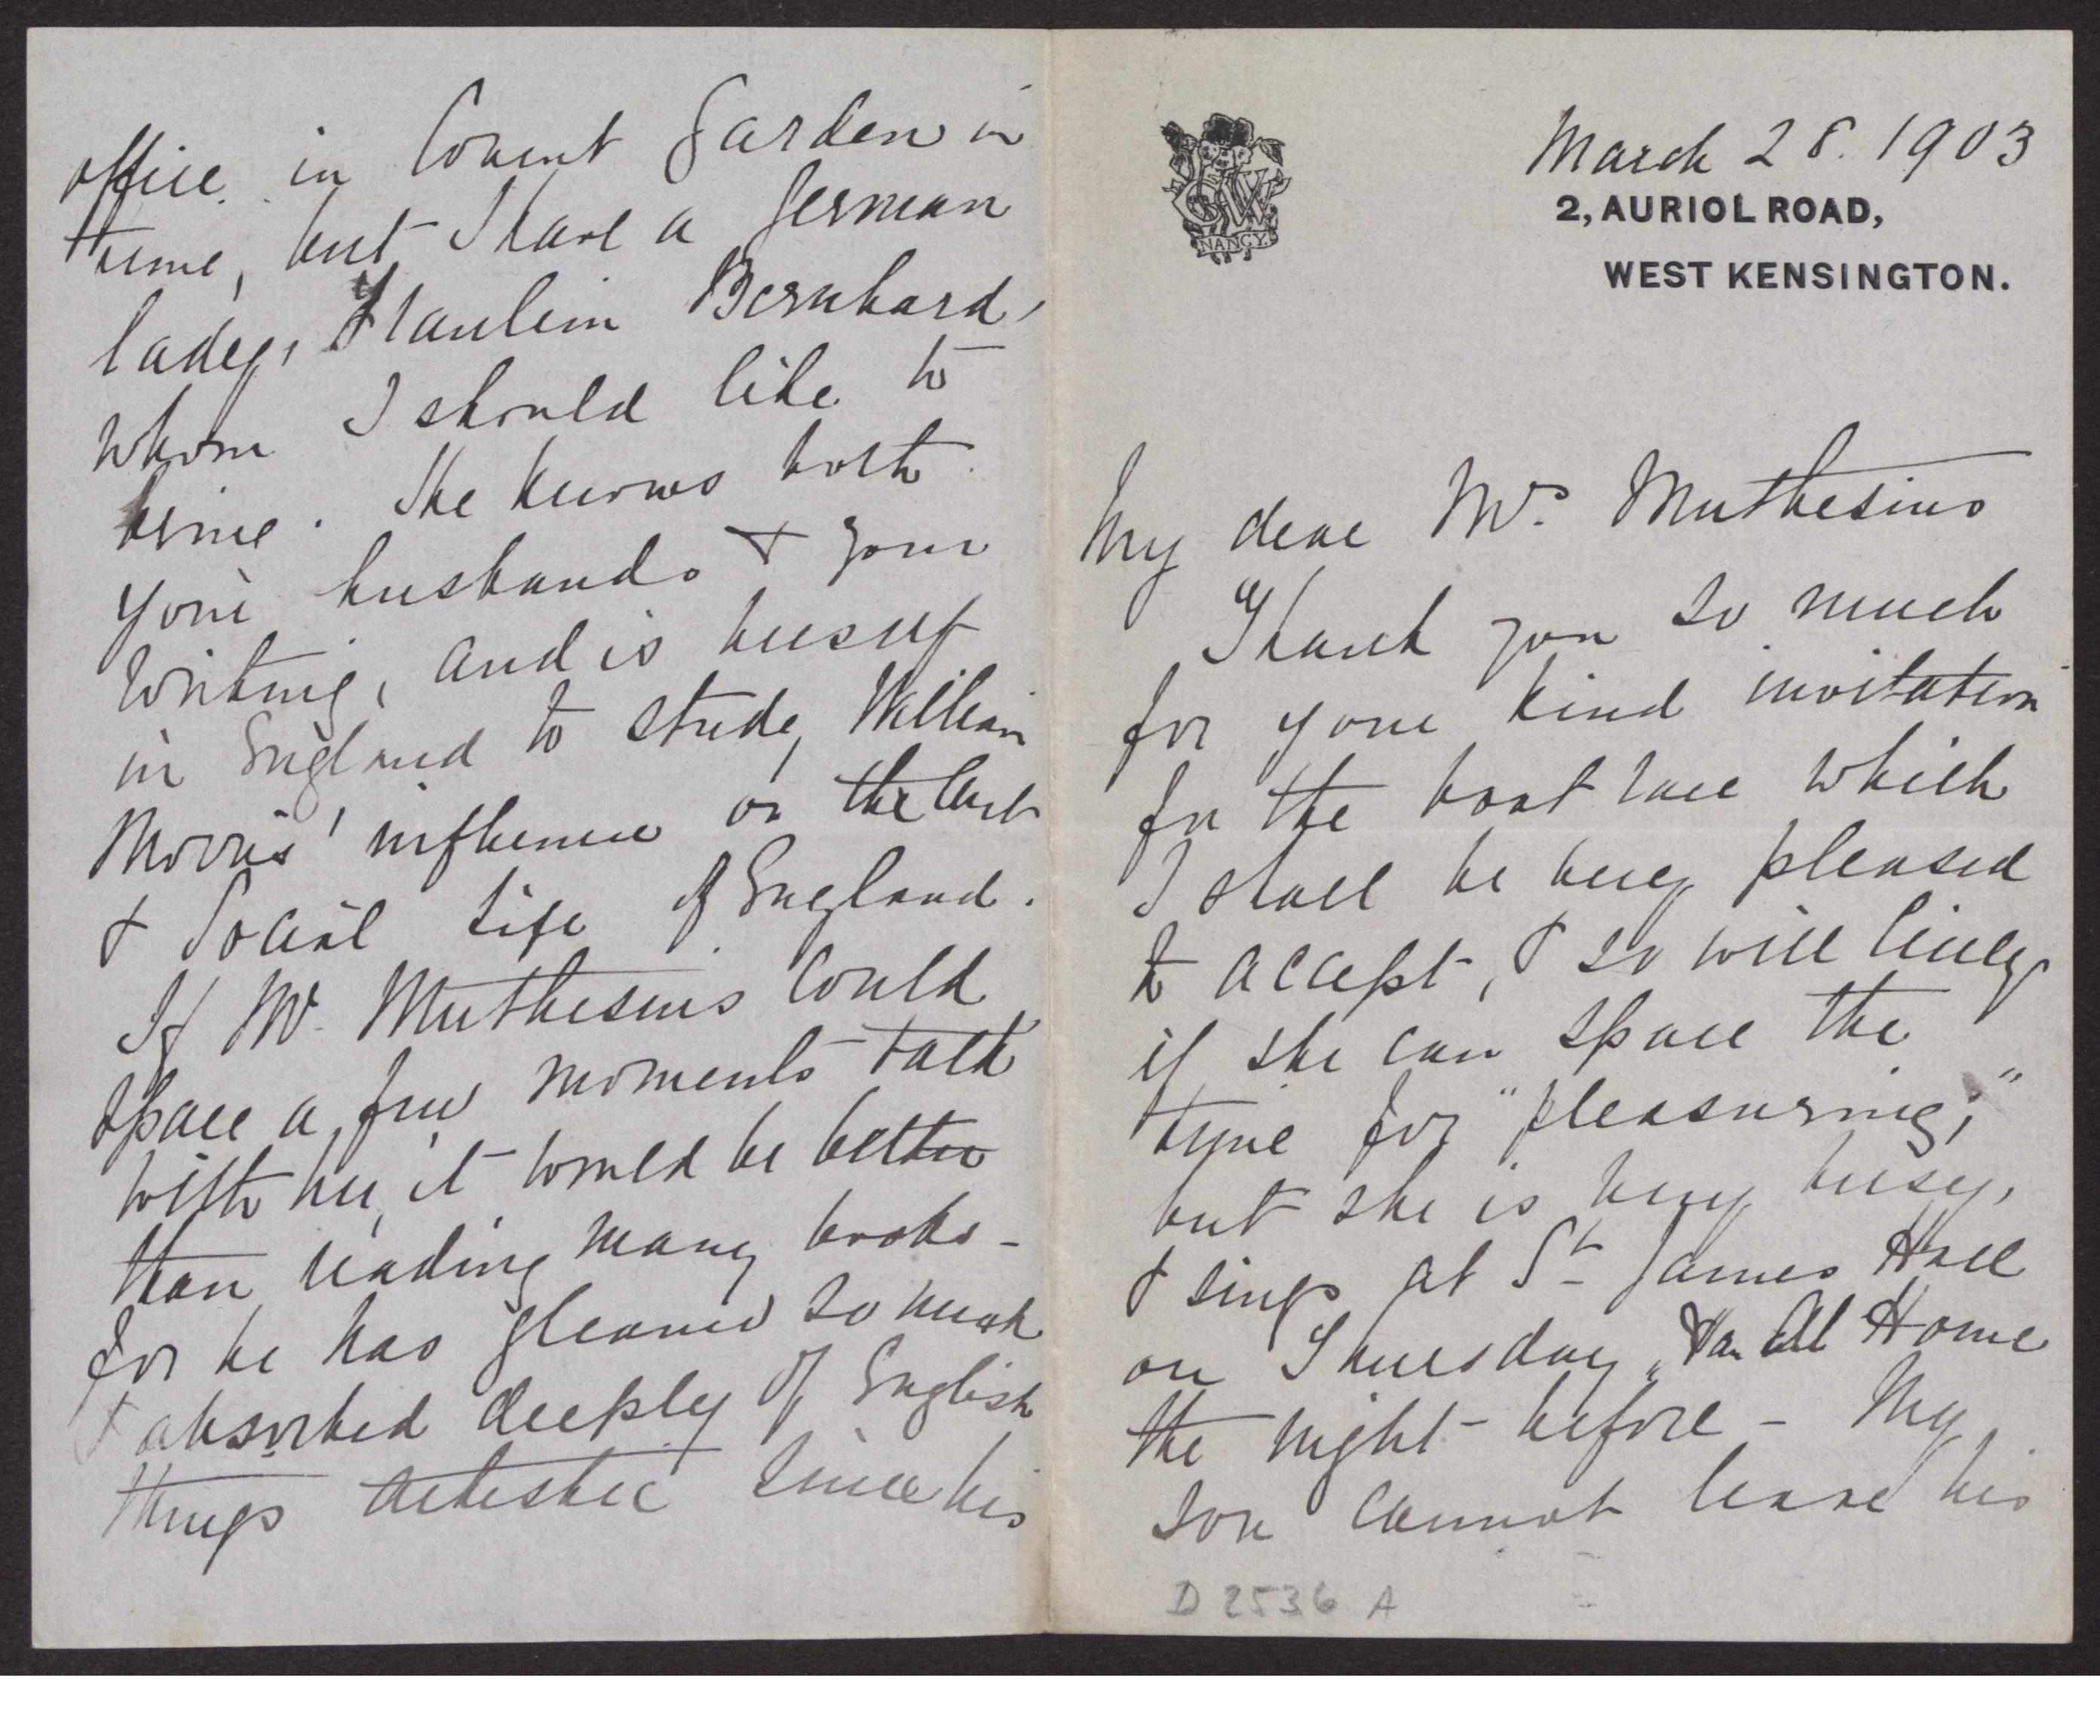 NANCY
March 28. 1903
2, AURIOL ROAD,
WEST KENSINGTON.
My dear Mrs. Muthesius
Thank you so much
for your kind invitation
for the boat race which
I shall be very pleased
to accept, & so will Cicely
if she can spare the
time for "pleasuring,"
but she is very busy,
& sings at St James Hall
on Thursday, & an At Home
the night before - My
son cannot leave his
office in Covent Garden in
time, but I have a German
lady, Fraulein Bernhard,
whom I should like to
bring. She knows both
your husbands & your
writing, and is busy
in England to study William
Morris' influence on the Art
& Social Life of England.
If Mr. Muthesius could
spare a few moments talk
with her, it would be better
than reading many books -
for he has gleaned so much
& absorbed deeply of English
things artistic since his
D 2536 A